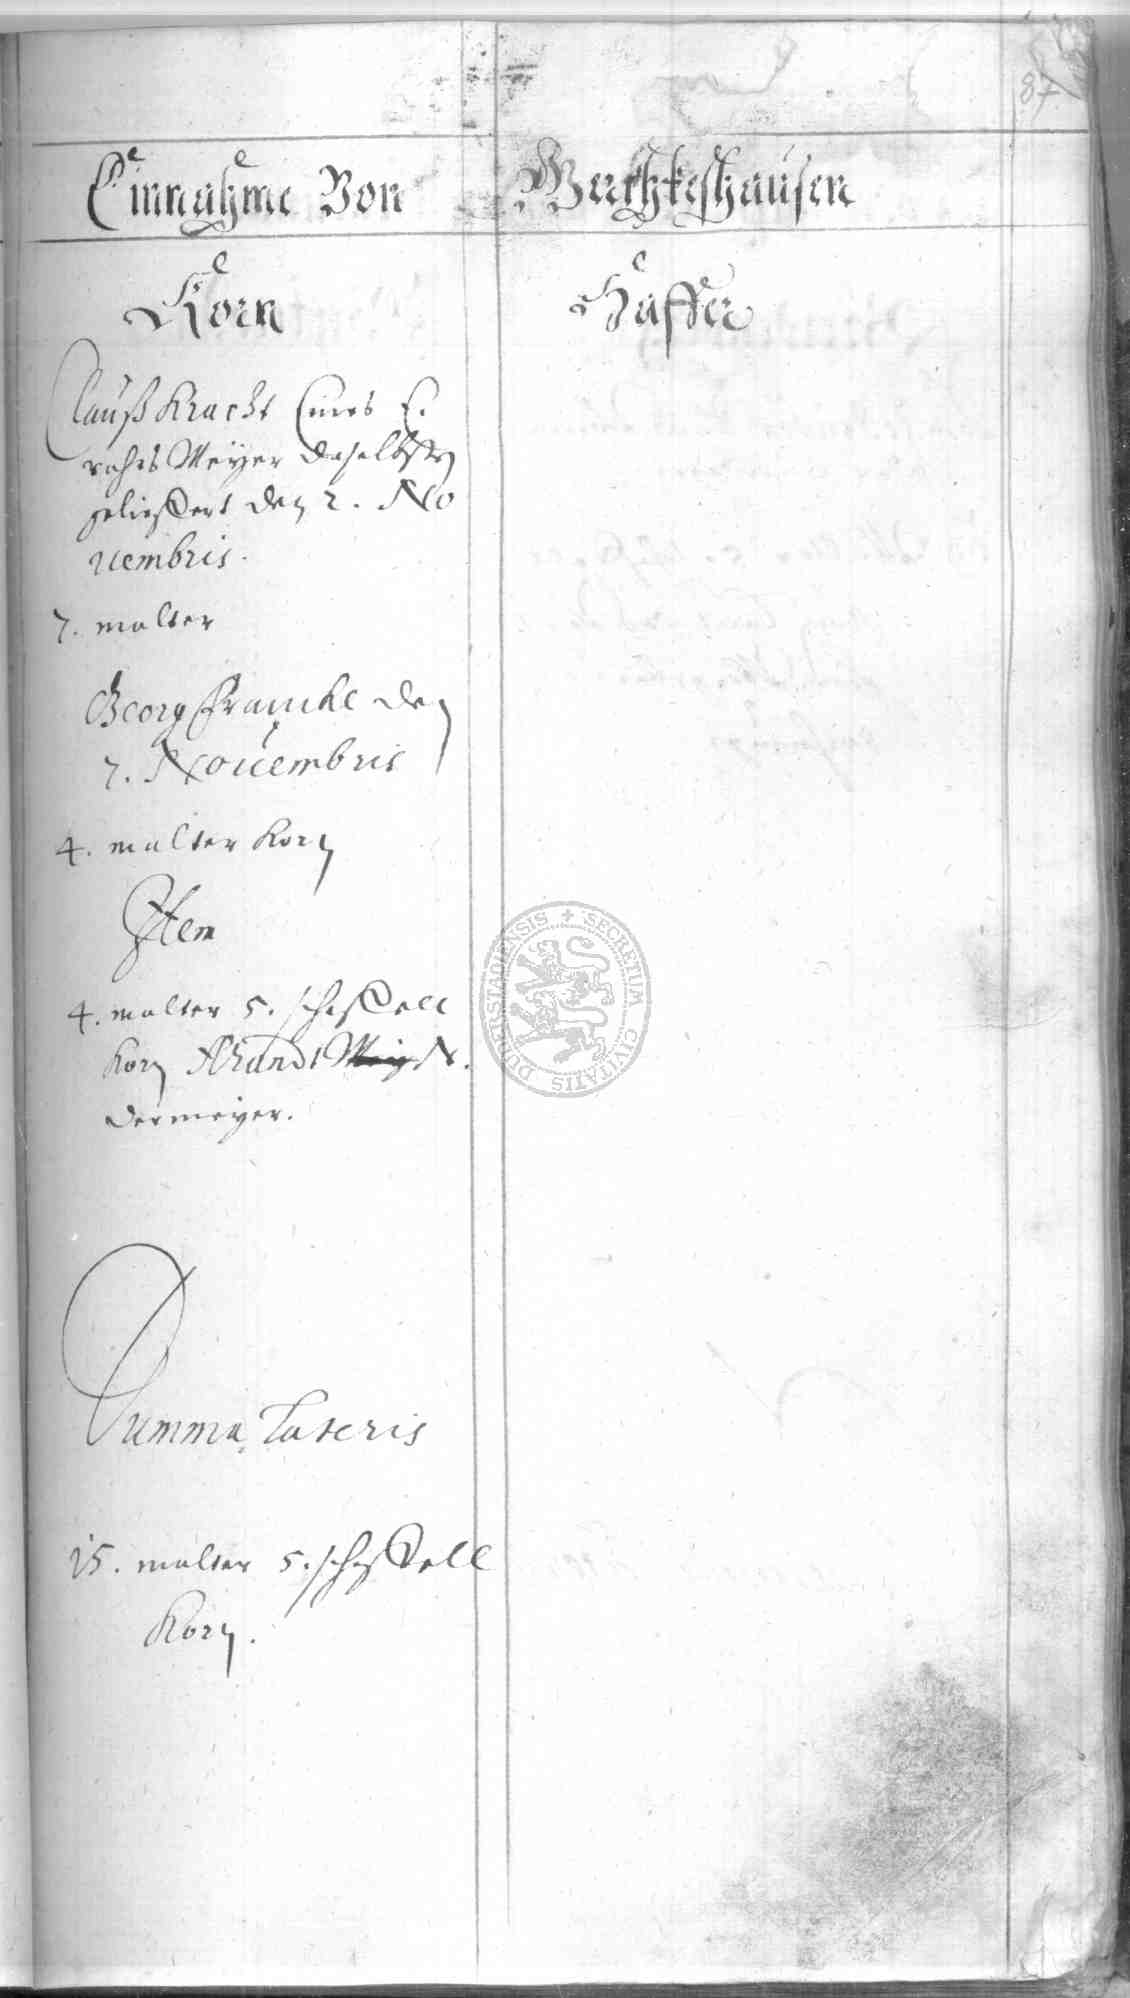 87
Einnahme Von Werxheshausen
Korn
Haffer
Clauß Kracht Eines E.
rahts Meyer daselbsten
gelieffert den 2. No
uembris.
7. malter
Georg Francke den
7. Nouembris
4. malter Korn
Item
4. malter 5. scheffell
Korn Arandt N.
dermeyer.
Summa Lateris
15. malter 5. scheffell
Korn.
SECRETUM CIVITATIS DUDERSTADIENSIS